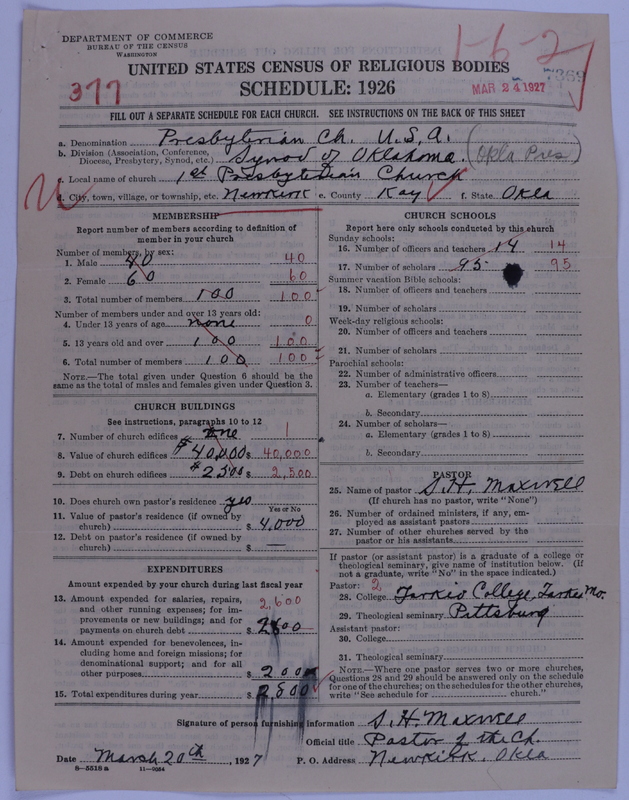 DEPARTMENT OF COMMERCE
BUREAU OF THE CENSUS
WASHINGTON
1-6-27
UNITED STATES CENSUS OF RELIGIOUS BODIES
377
SCHEDULE: 1926
MAR 24 1927
FILL OUT A SEPARATE SCHEDULE FOR EACH CHURCH. SEE INSTRUCTIONS ON THE BACK OF THIS SHEET
a. Denomination Presbyterian Ch. U.S.A.
b. Division (Association, Conference, Diocese, Presbytery, Synod, etc.) Synod of Oklahoma. (Okla Pres)
c. Local name of church 1st Presbyterian Church
d. City, town, village, or township, etc. Newkirk e. County Kay f. State Okla
MEMBERSHIP
Report number of members according to definition of
member in your church
Number of members, by sex:
1. Male 40 40
2. Female 60 60
3. Total number of members 100 100
Number of members under and over 13 years old:
4. Under 13 years of age none 0
5. 13 years old and over 100 100
6. Total number of members 100 100
NOTE.—The total given under Question 6 should be the
same as the total of males and females given under Question 3.
CHURCH BUILDINGS
See instructions, paragraphs 10 to 12
7. Number of church edifices one 1
8. Value of church edifices $40,000 $ 40,000
9. Debt on church edifices $2500 $ 2,500
10. Does church own pastor's residence yes
Yes or No
11. Value of pastor's residence (if owned by
church) $ 4,000
12. Debt on pastor's residence (if owned by
church) $ —
EXPENDITURES
Amount expended by church during last fiscal year
13. Amount expended for salaries, repairs, 2,600
and other running expenses; for im-
provements or new buildings; and for
payments on church debt $ 2600
14. Amount expended for benevolences, in-
cluding home and foreign missions; for
denominational support; and for all
other purposes $ 200
15. Total expenditures during year $ 2,800
CHURCH SCHOOLS
Report here only schools conducted by this church
Sunday schools:
16. Number of officers and teachers 14 14
17. Number of scholars 95 95
Summer vacation Bible schools:
18. Number of officers and teachers
19. Number of scholars
Week-day religious schools:
20. Number of officers and teachers
21. Number of scholars
Parochial schools:
22. Number of administrative officers
23. Number of teachers—
a. Elementary (grades 1 to 8)
b. Secondary
24. Number of scholars—
a. Elementary (grades 1 to 8)
b. Secondary
PASTOR
25. Name of pastor S. H. Maxwell
(If church has no pastor, write "None")
26. Number of ordained ministers, if any, em-
ployed as assistant pastors
27. Number of other churches served by the
pastor or his assistants
If pastor (or assistant pastor) is a graduate of a college or
theological seminary, give name of institution below. (If
not a graduate, write "No" in the space indicated.)
Pastor: 2
28. College Tarkio College, Tarkio Mo.
29. Theological seminary Pittsburg
Assistant pastor:
30. College
31. Theological seminary
NOTE.—Where one pastor serves two or more churches,
Questions 28 and 29 should be answered only on the schedule
for one of the churches; on the schedules for the other churches,
write "See schedule for church."
Signature of person furnishing information S. H. Maxwell
Official title Pastor of the Ch.
Date March 20th, 1927 P. O. Address Newkirk, Okla
8-5518 a 11-9054